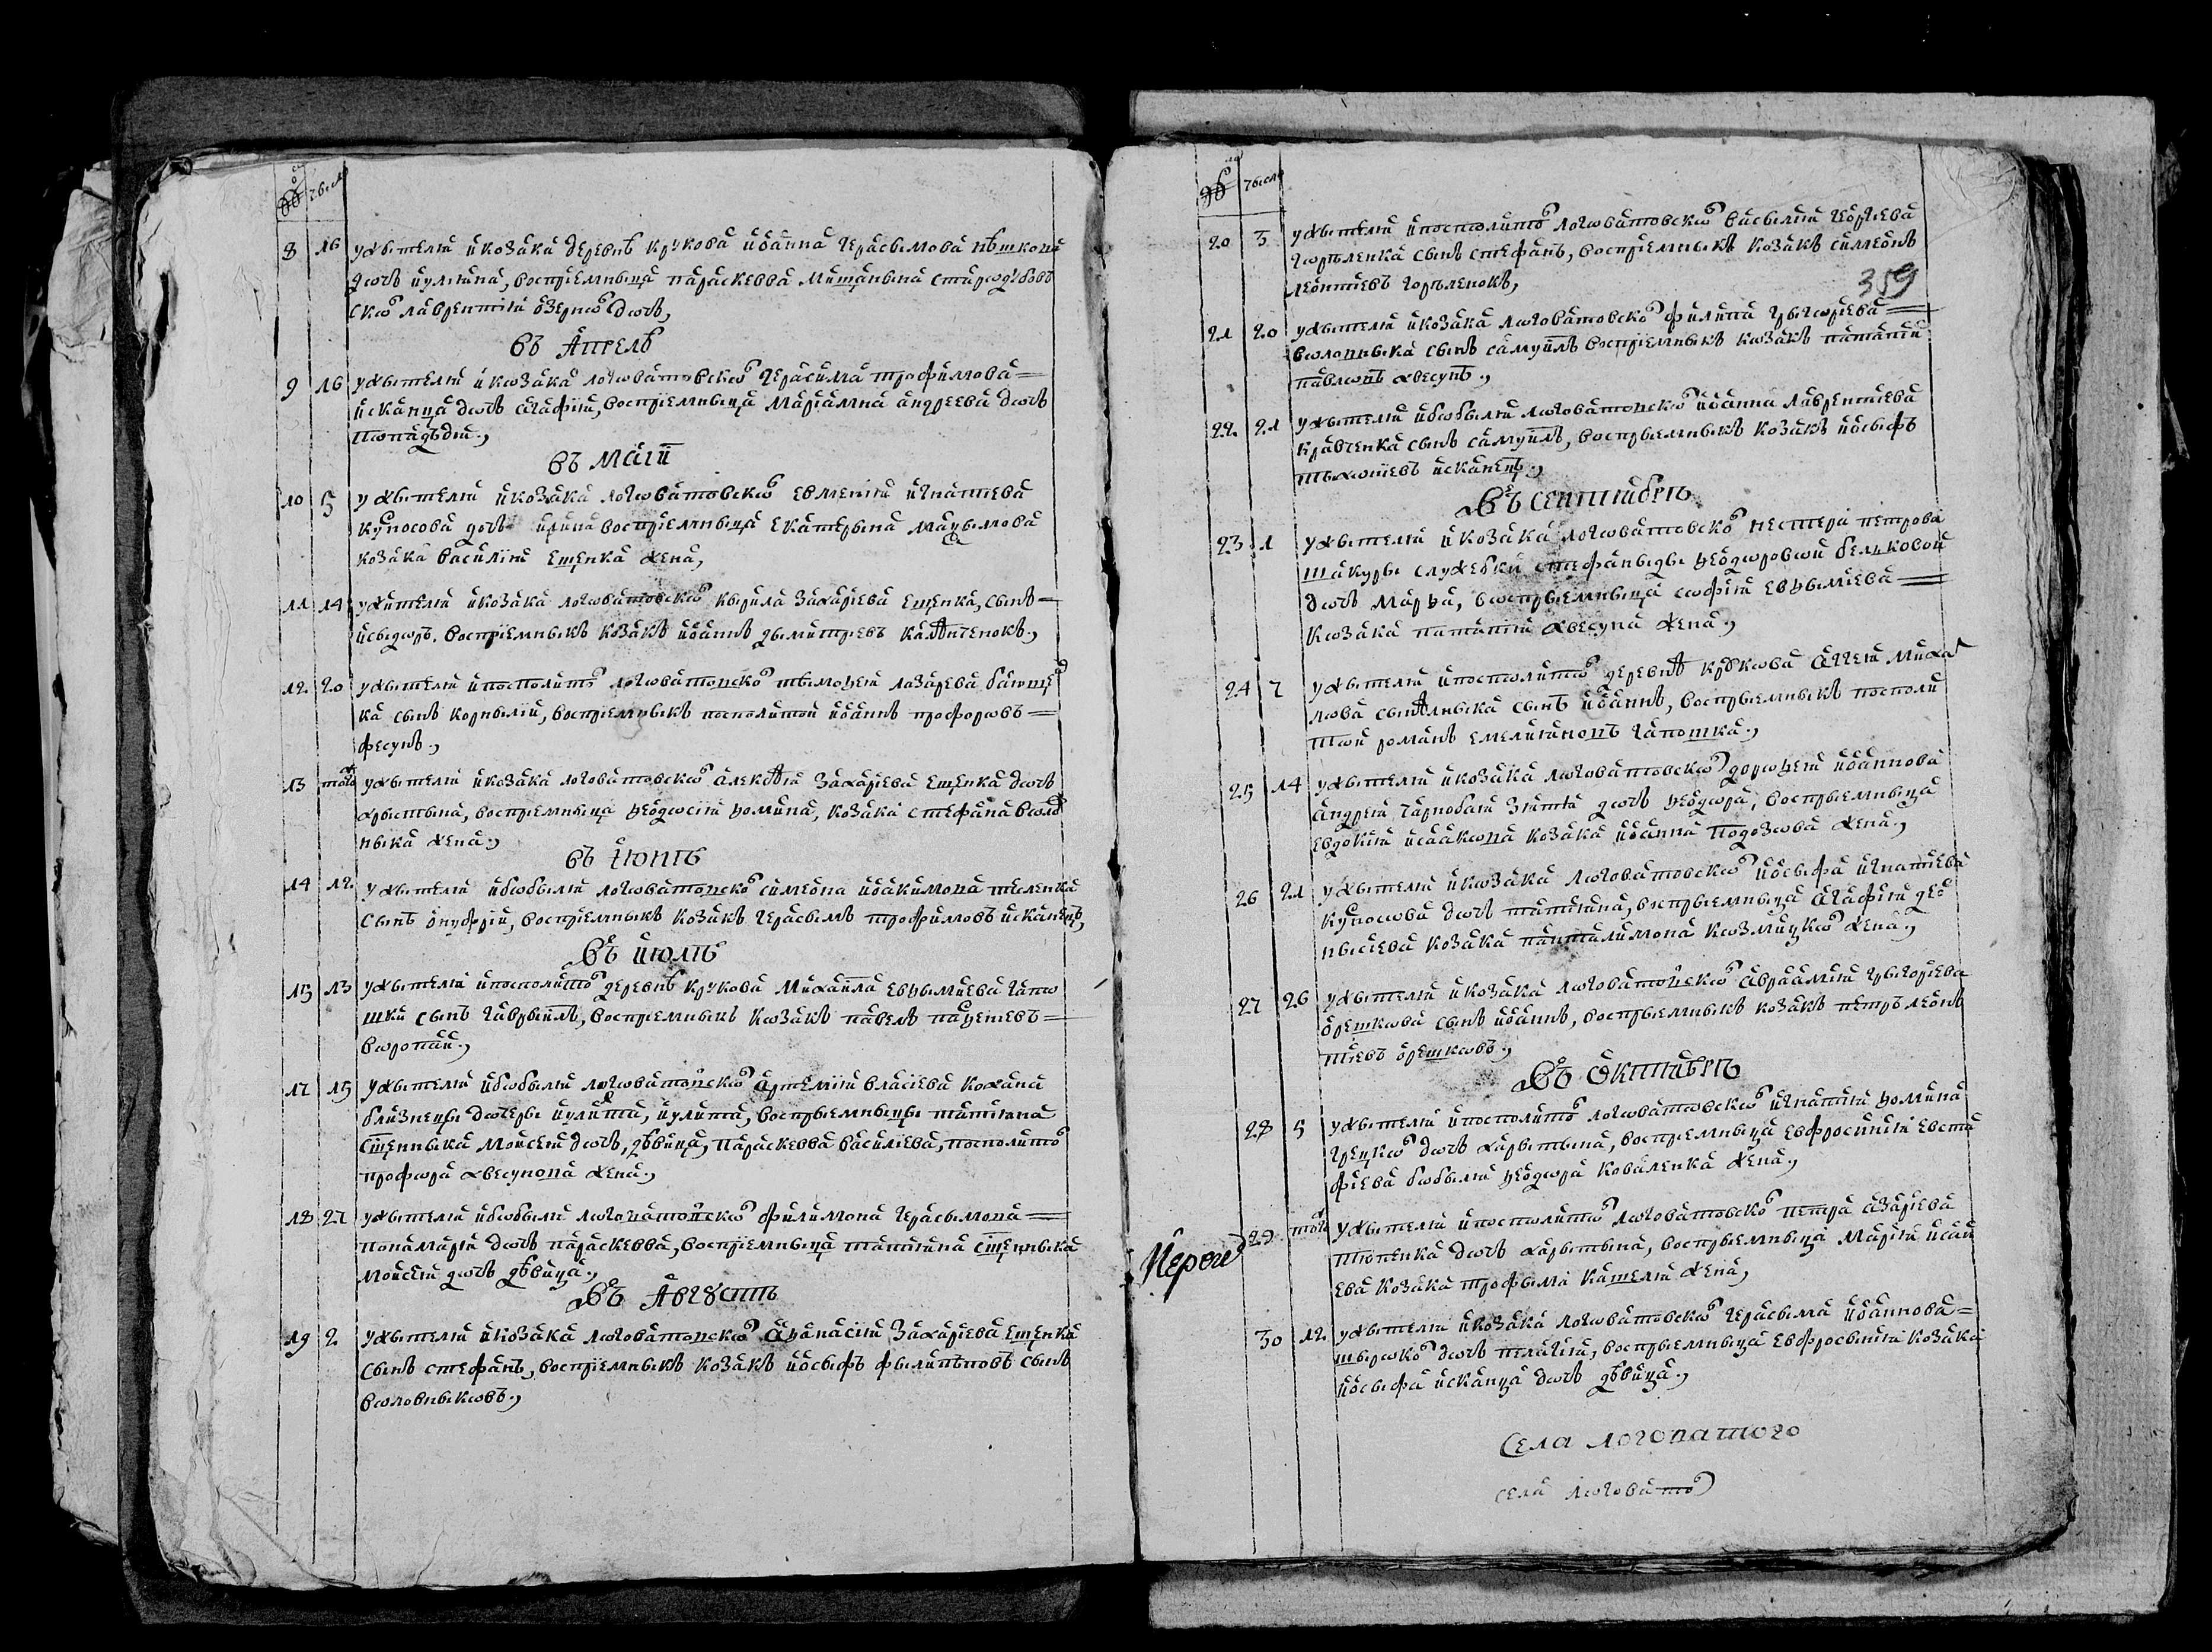 число
8 16 у жителя и козака деревнѣ крукова иоанна герасимова
дочь иулиана, восприемница параскевва старод
ско лаврентия озерно дочь,
въ Апрелѣ
9 16 у жителя и козака логоватовско герасима трофимова =
исканца дочь агафия, восприемница мариамна андреева дочь
попадья.,
въ маѣи
10 5 у жителя и козака логоватовско евмения игнатиева
куносова дочь ирина восприемница екатерина
козака василия ещенка жена,
11 14 у жителя и козака логоватовско кирила захариева ещенка, сынъ =
исидоръ. восприемникъ козакъ иоаннъ димитриевъ
12 20 у жителя и посполито логоватовско тимофея лазарева
ка сынъ корнилий, восприемникъ посполитой иоаннъ =
фесунъ.,
13 того у жителя и козака логоватовско захариева ещенка дочь
христина, восприемница феодосия фомина, козака стефана воло
ника жена.,
въ июнѣ
14 12 у жителя и бобыля логоватовско симеона иоакимова теленка
сынъ онуфрий, восприемникъ козакъ герасимъ трофимовъ исканецъ,
въ июлѣ
15 13 у жителя и посполито деревнѣ крукова михаила евфимиева гапо
шки сынъ гавриилъ, восприемникъ козакъ павелъ =
воропай.,
17 15 у жителя и бобыля логоватовско артемия власиева кохана
близнецы дочери иулита, иулита, восприемницы татиана
сщенника моисея дочь, дѣвица, параскевва василиева, посполито
профора хвесунова жена.,
18 27 у жителя и бобыля логоватовско филимона герасимова =
понамаря дочь параскевва, восприемница татиана сщенника
моисея дочь дѣвица.,
въ Августѣ
19 2 у жителя и козака логоватовско афанасия захариева ещенка
сынъ стефанъ, восприемникъ козакъ иосифъ филиповъ сынъ
воловниковъ.,
число
20 3 у жителя и посполито логоватовско василия георгиева
горленка сынъ стефанъ, восприемникъ козакъ симеонъ
леонтиевъ горленокъ,
359
21 20 у жителя и козака логоватовско филипа григориева =
воловника сынъ самуилъ восприемникъ козакъ
павловъ хвесунъ.,
22 21 у жителя и бобыля логоватовско иоанна лаврентиева
кравченка сынъ самуилъ, восприемникъ козакъ иосифъ
исканецъ.,
въ сентябрѣ
23 1 у жителя и козака логоватовско нестера петрова
шакуры служебки стефаниды феодоровой
дочь марфа, восприемница софия евфимиева =
козака хвесуна жена.,
24 7 у жителя и посполито деревнѣ круковa аггея миха
лова сынъ иоаннъ, восприемникъ посполи
той романъ емелиановъ гапошка.,
25 14 у жителя и козака логоватовско дорофея иоаннова
андрея чарнобая зятя дочь феодора, восприемница
евдокия исаакова козака иоанна подозова жена.,
26 21 у жителя и козака логоватовско иосифа игнатиева
куносова дочь татиана, восприемница агафия део
нисиева козака панталимона козмицко жена.,
27 26 у жителя и козака логоватовско авраамия григориева
орешкова сынъ иоаннъ, восприемникъ козакъ петръ леон
тиевъ орешковъ.,
въ Октябрѣ
28 5 у жителя и посполито логоватовско игнатия фомина
грецко дочь харитина, восприемница евфросиния евста
фиева бобыля феодора коваленка жена.,
Перече
29 того у жителя и посполито логоватовско петра азариева
тюпенка дочь харитина, восприемница мария исаи
ева козака трофима кашеля жена,
30 12 у жителя и козака логоватовско герасима иоаннова =
широко дочь пелагия, восприемница евфросиния козака
иосифа исканца дочь дѣвица.,
Села логоватого
села логовато